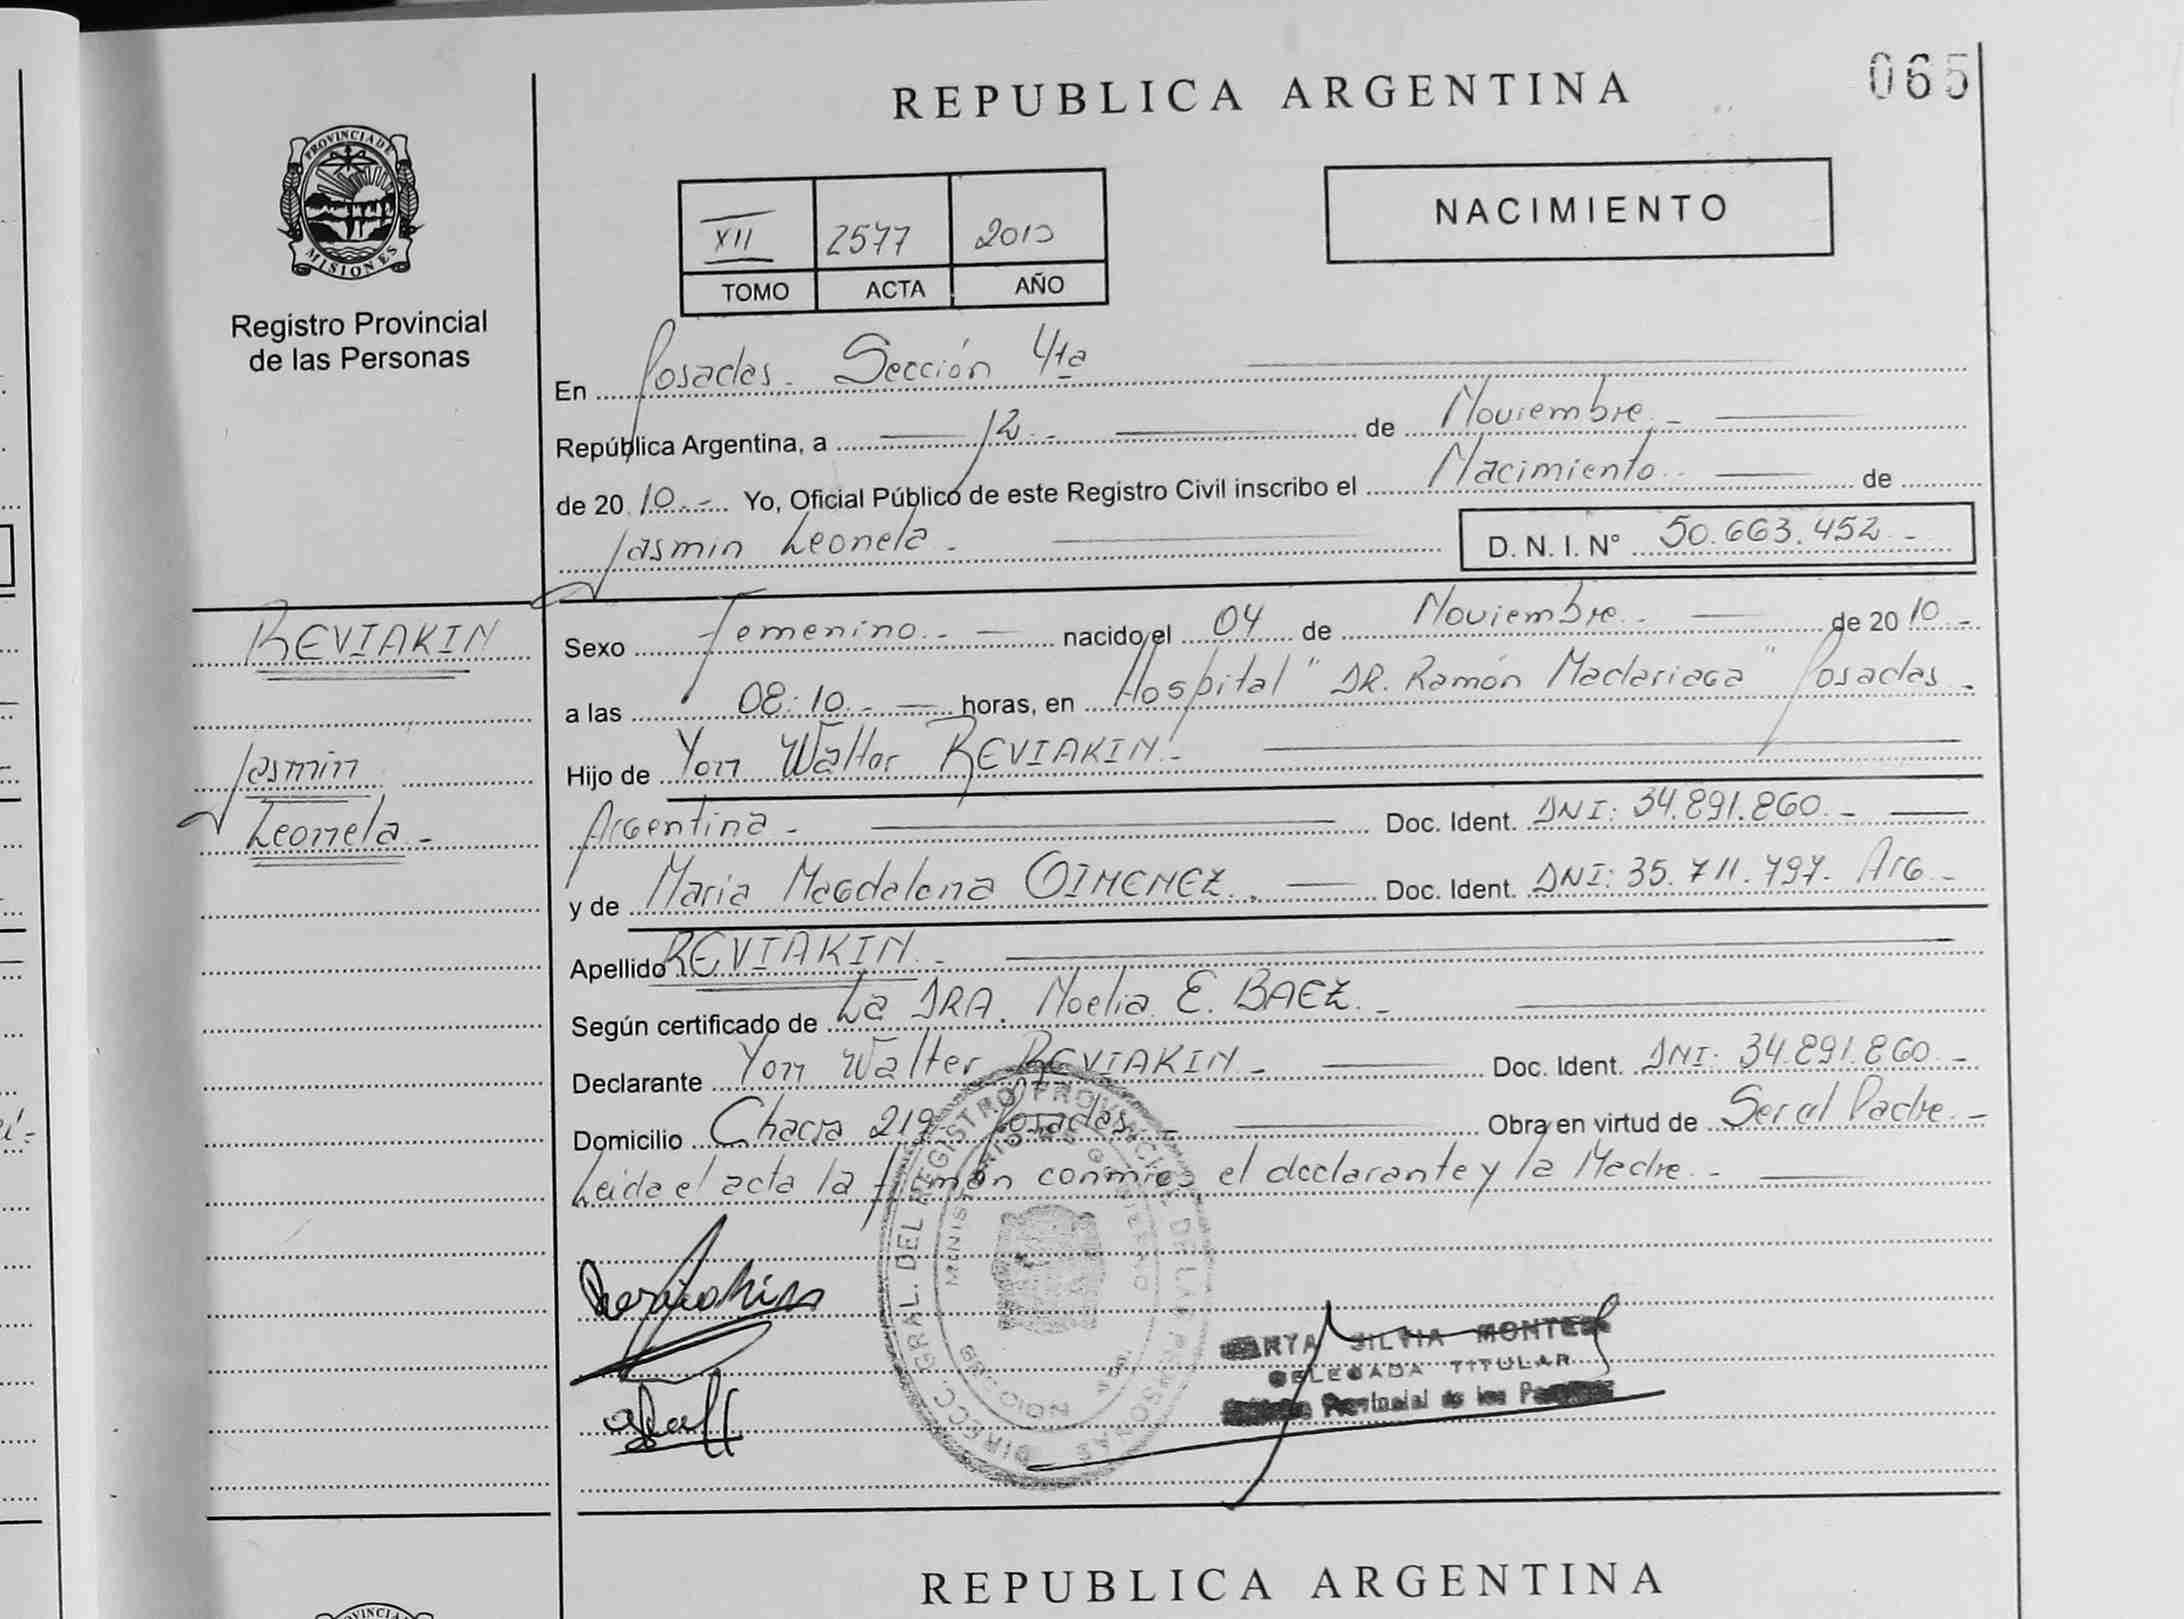 065
REPUBLICA ARGENTINA
PROVINCIA DE
MISIONES
Registro Provincial
de las Personas
XII 2577 2010
TOMO ACTA AÑO
NACIMIENTO
En Posadas. Sección 4ta
República Argentina, a 12 de Noviembre
de 20 10 Yo, Oficial Público de este Registro Civil inscribo el Nacimiento de
Jasmin Leonela D. N. I. N° 50.663.452
REVIAKIN
Jasmin
Leonela
Sexo Femenino nacido el 04 de Noviembre de 20 10
a las 08:10 horas, en Hospital "DR. Ramón Madariaga" Posadas
Hijo de Yon Walter REVIAKIN
Argentina Doc. Ident. DNI: 34.891.860
y de Maria Magdalena GIMENEZ Doc. Ident. DNI: 35.711.797. Arg
Apellido REVIAKIN
Según certificado de La DRA. Noelia E. BAEZ
Declarante Yon Walter REVIAKIN Doc. Ident. DNI: 34.891.860
Domicilio Chacra 219 Posadas Obra en virtud de Ser el Padre
Leida el acta la firman conmigo el declarante y la Madre
DIRECC. GRAL. DEL REGISTRO PROVINCIAL DE LAS PERSONAS
SILVIA MONTE
DELEGADA TITULAR
Provincial de las
REPUBLICA ARGENTINA